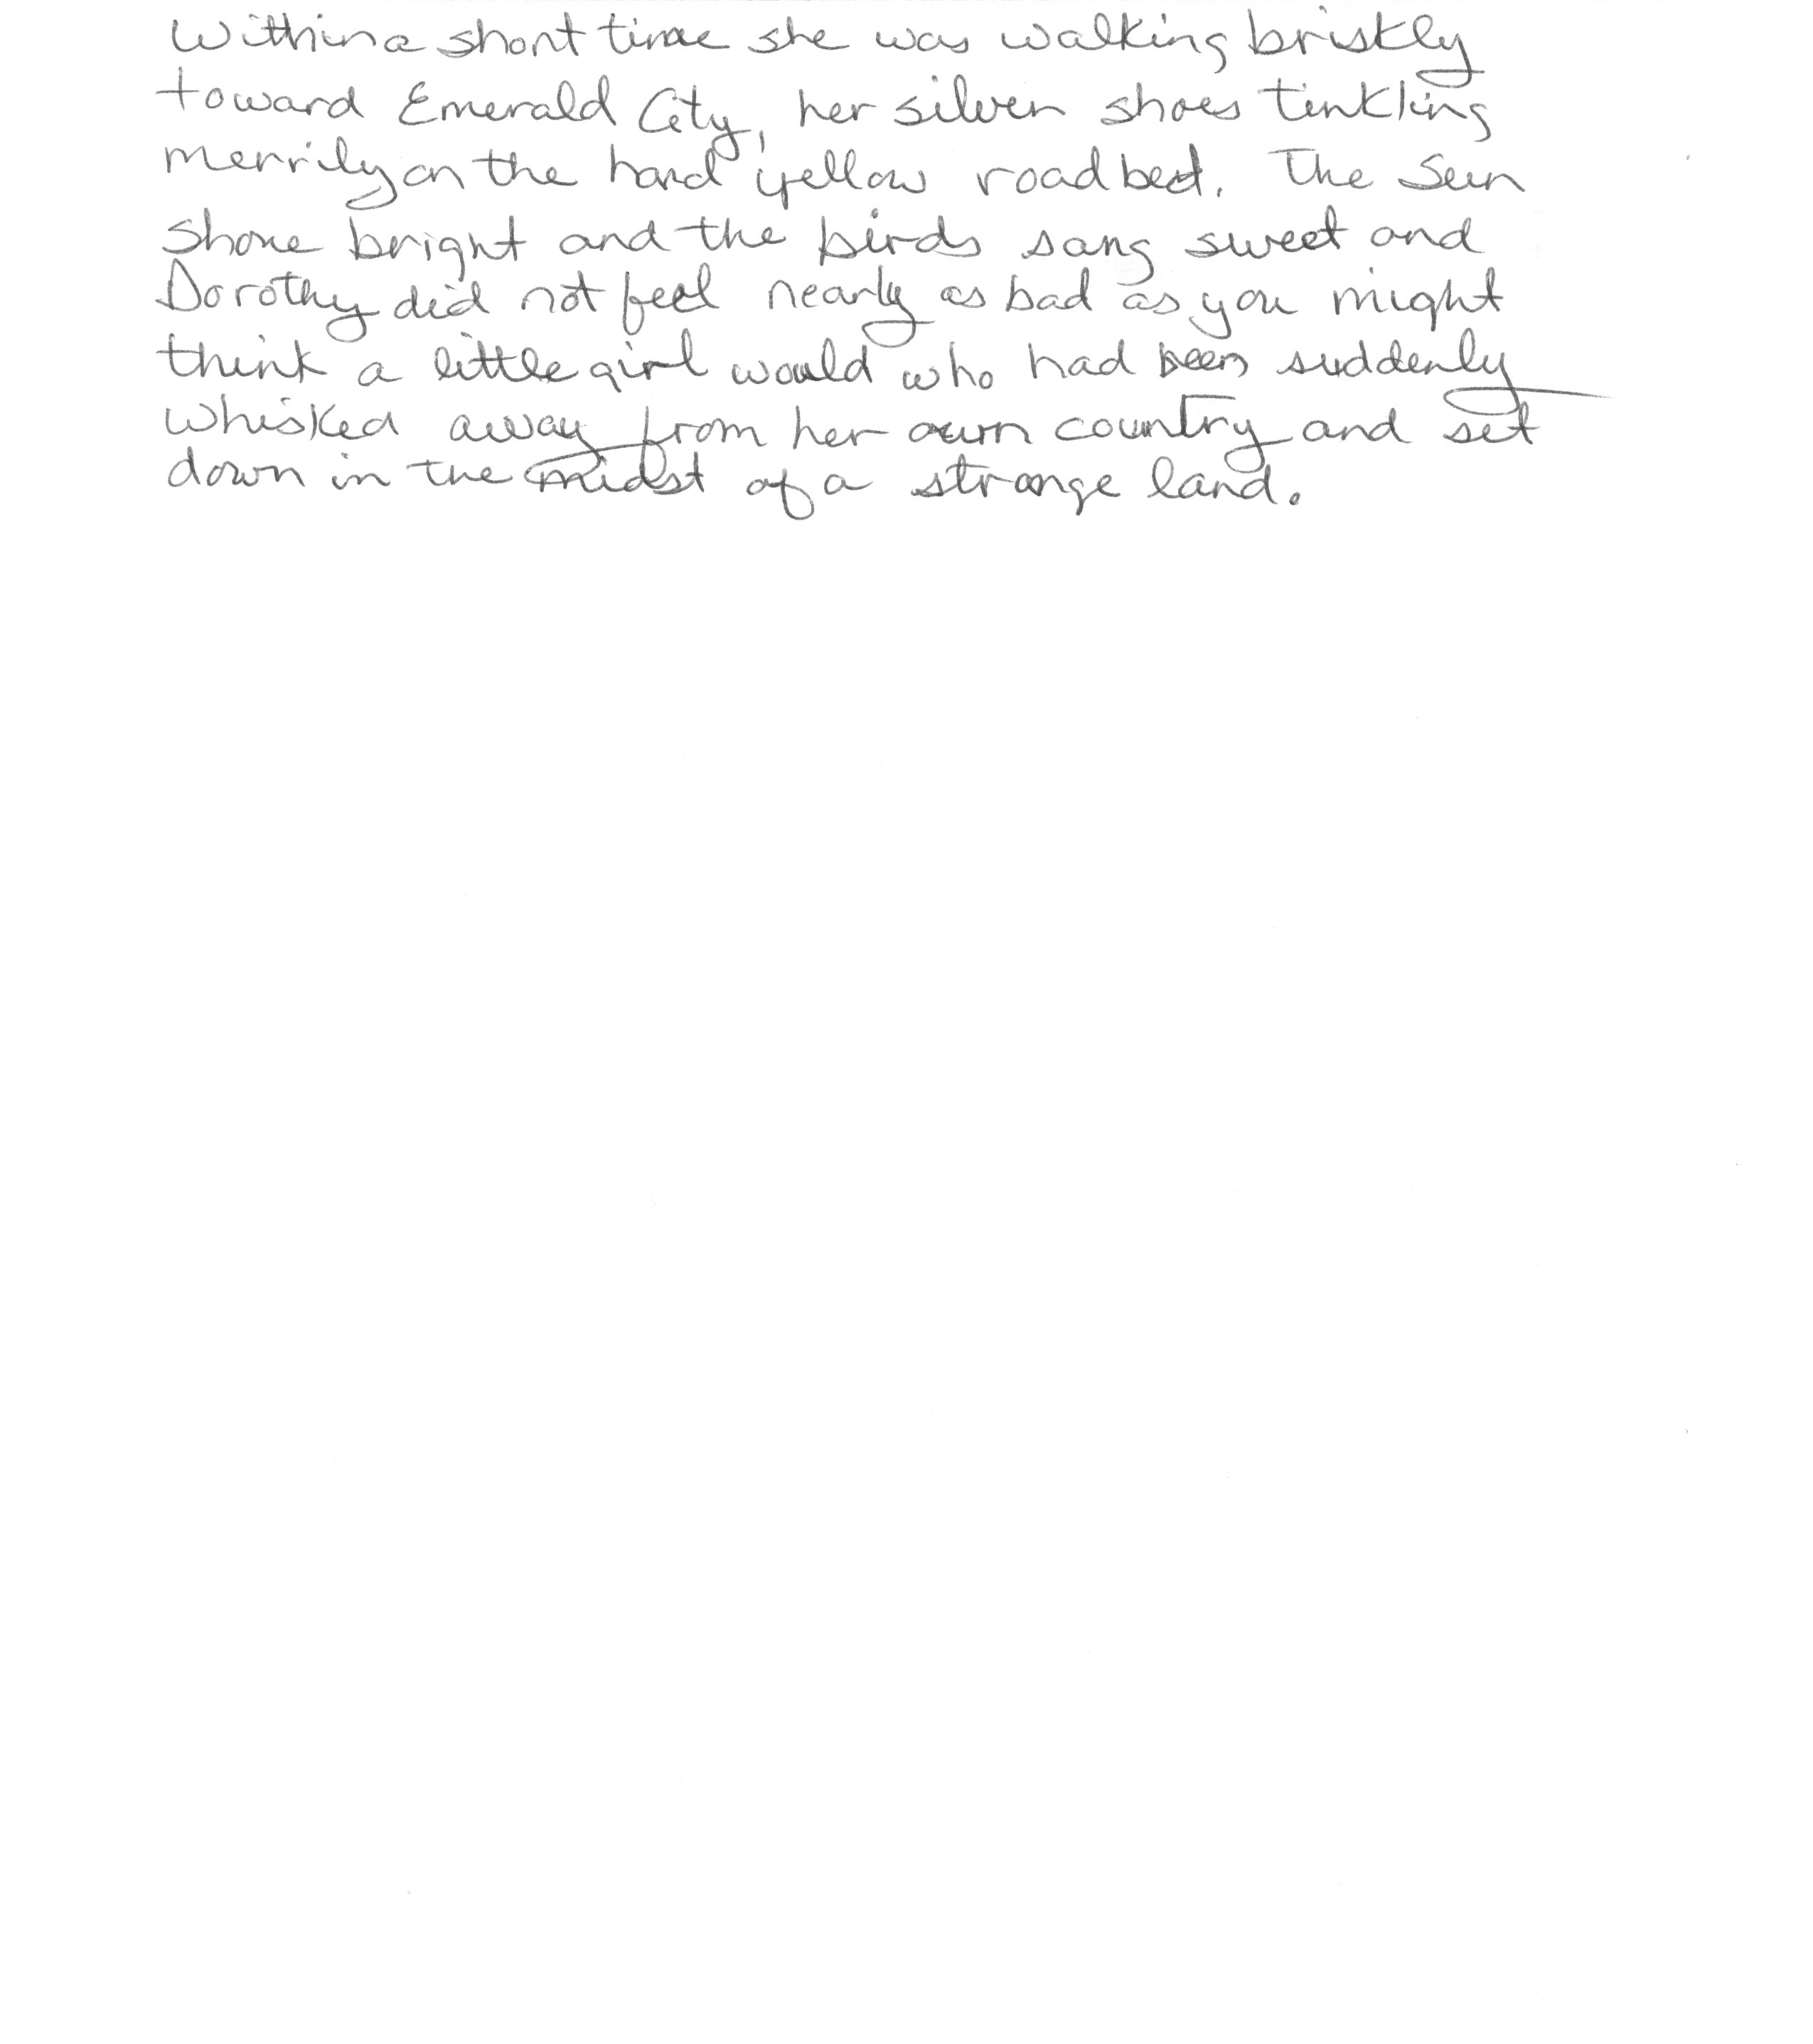 Within a short time she was walking briskly
toward Emerald City, her silver shoes tinkling
merrily on the hard yellow roadbed. The sun
shone bright and the birds sang sweet and
Dorothy did not feel nearly as bad as you might
think a little girl would who had been suddenly
whisked away from her own country and set
down in the midst of a strange land.